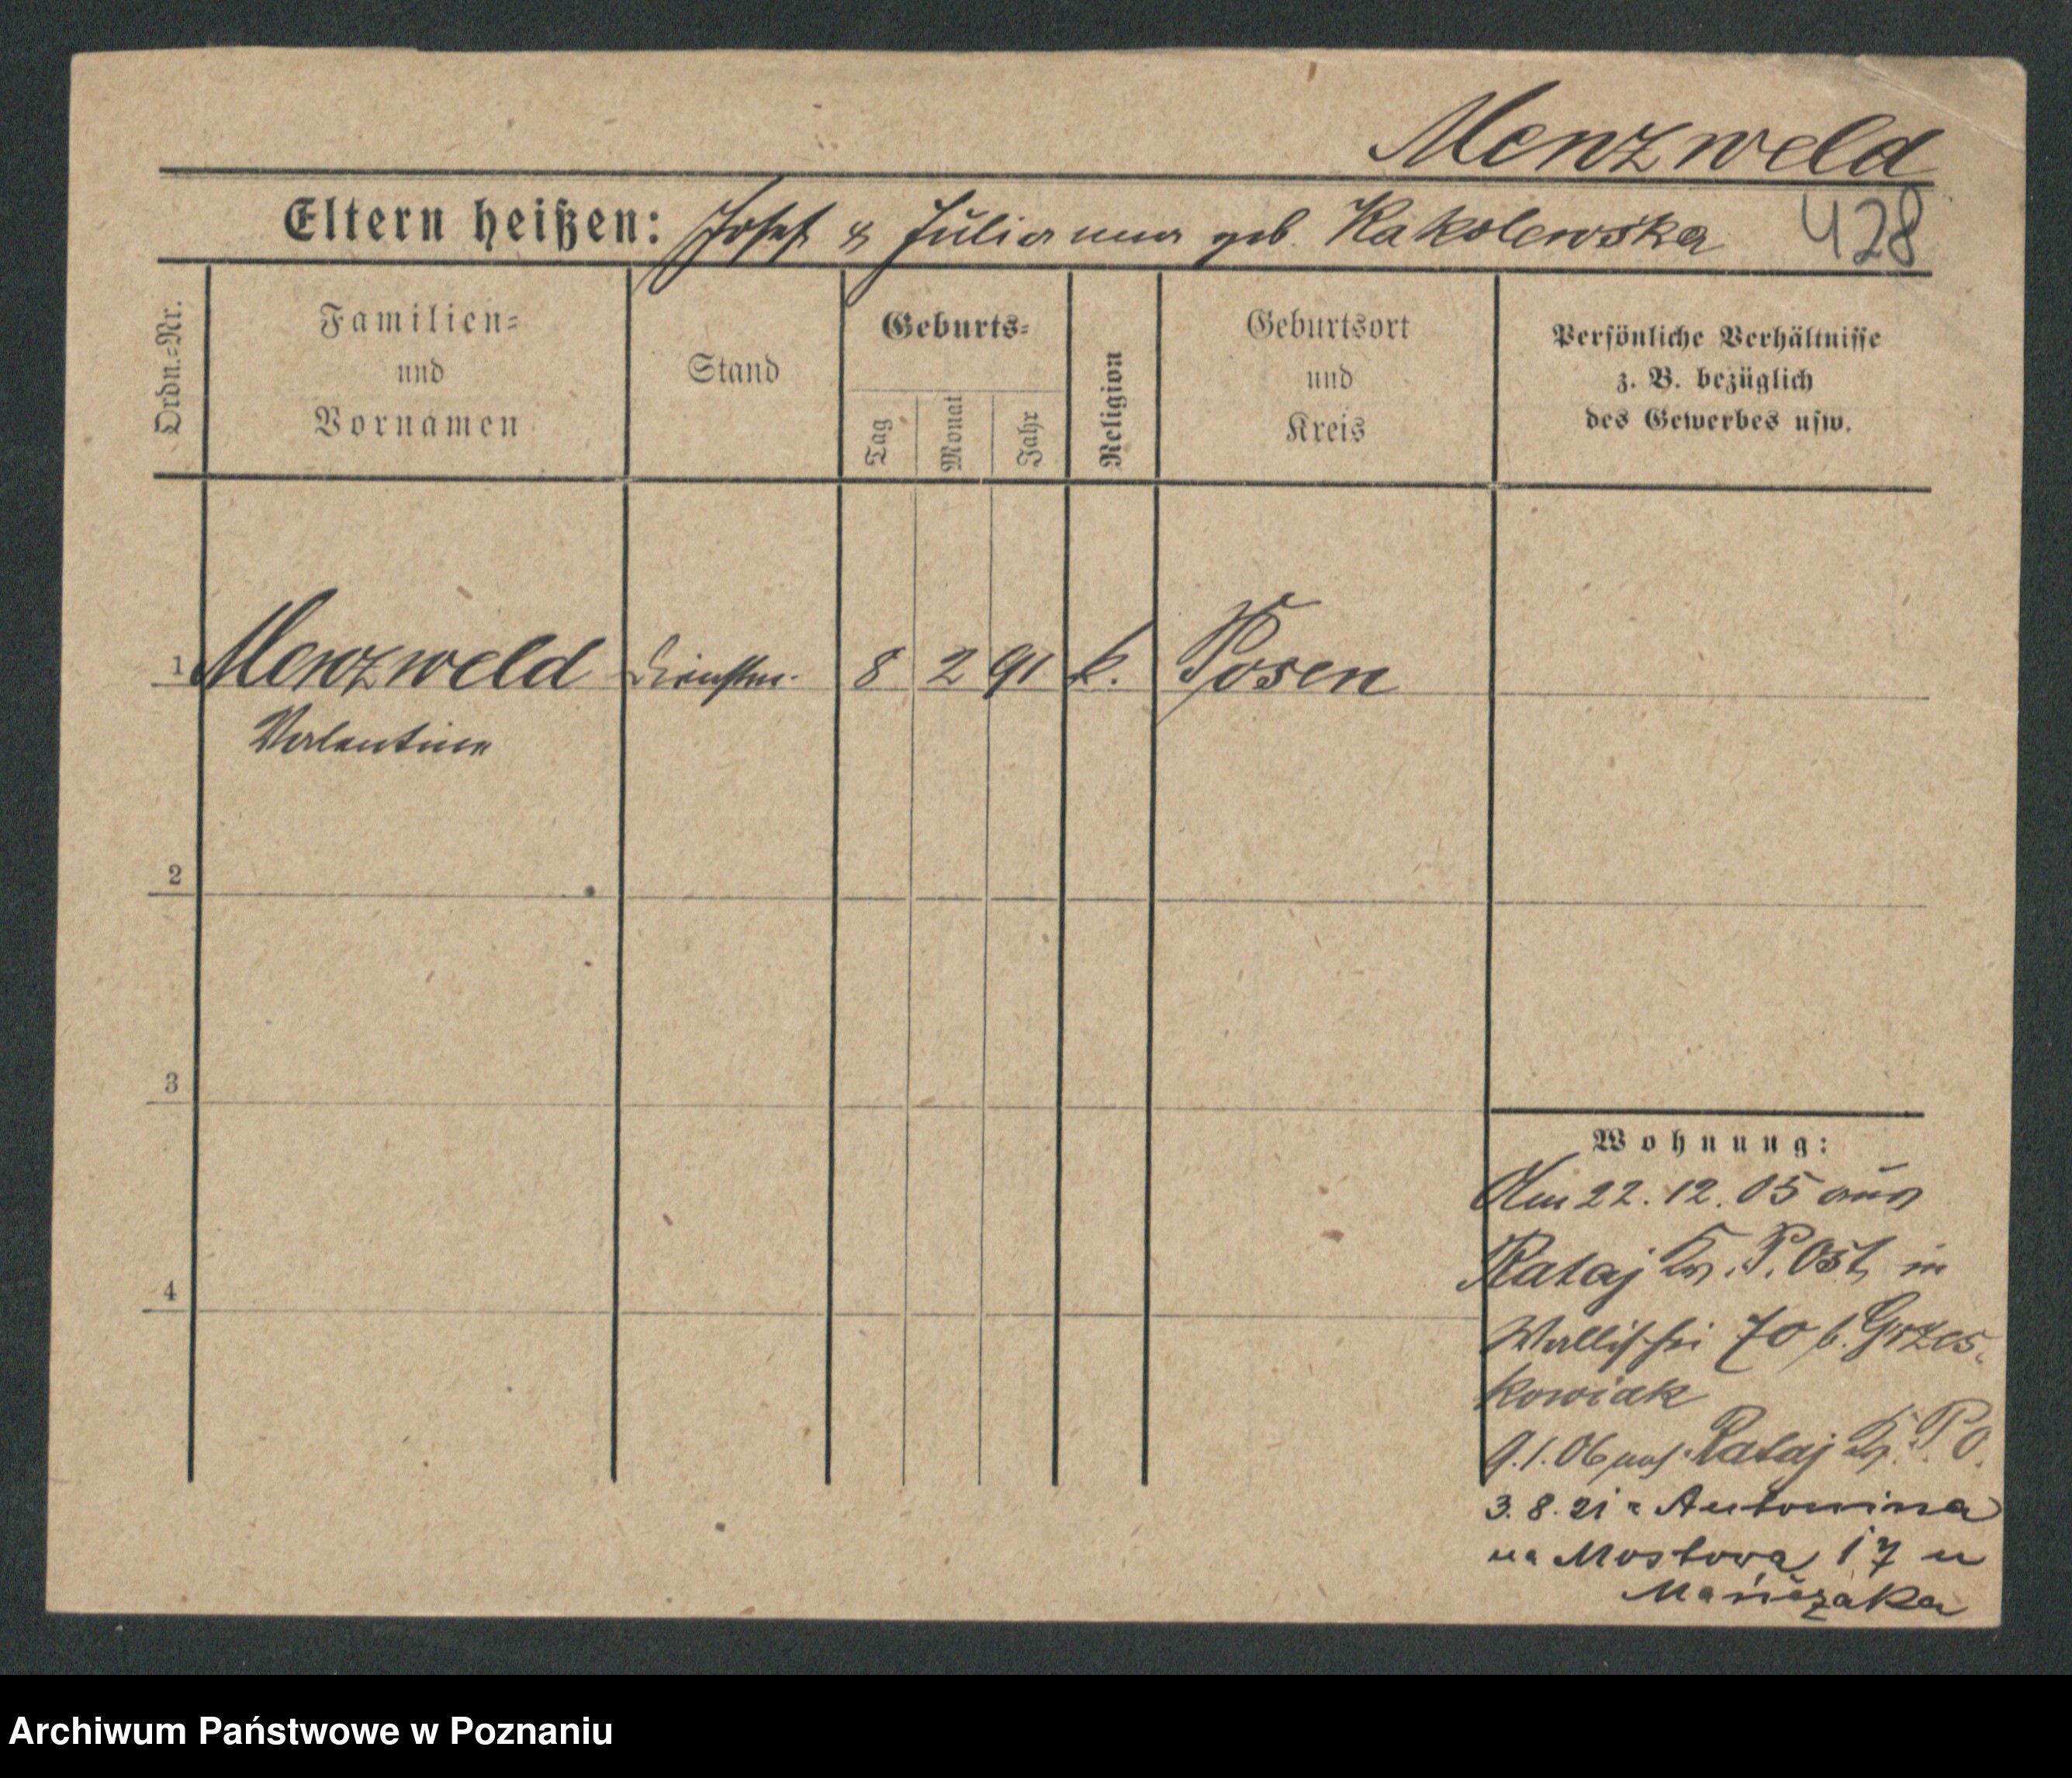 Menzweld
Eltern heißen: Josef & Julianna geb. Kakolewska
428
Ordn.=Nr.
Familien=
und
Vornamen
Stand
Geburts=
Tag
Monat
Jahr
Religion
Geburtsort
und
Kreis
Persönliche Verhältnisse
z. B. bezüglich
des Gewerbes usw.
1 Menzweld Dienstm. 8 2 91 k. Posen
Valentine
2
3
4
Wohnung:
Am 22.12.05 aus
Rataj Kr. P. Ost, in
Wallischei 70 b. Grzes-
kowiak
9.1.06 nach Rataj Kr. P. O.
3.8.21 z Antonina
na Mostowa 17 u
Mańczaka
Archiwum Państwowe w Poznaniu